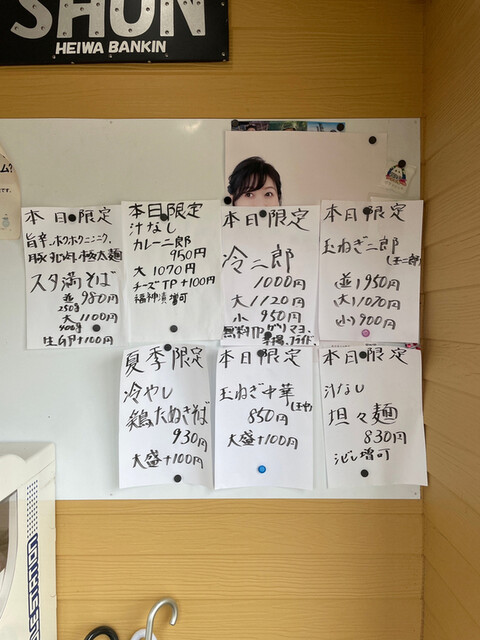 SHON
HEIWA BANKIN
本日限定
旨辛、ホクホクニンニク、
豚バラ肉、極太麺
スタ満そば
並 980円
250g
大 1100円
400g
生卵+100円
本日限定
汁なし
カレー二郎
950円
大 1070円
チーズTP+100円
福神漬増可
本日限定
冷二郎
1000円
大 1120円
小 950円
無料TP ガリマヨ
本日限定
玉ねぎ二郎
(玉二郎)
並 950円
大 1070円
小 900円
夏季限定
冷やし
鶏たぬきそば
930円
大盛+100円
本日限定
玉ねぎ中華
850円
大盛+100円
本日限定
汁なし
坦々麺
830円
シビレ増可